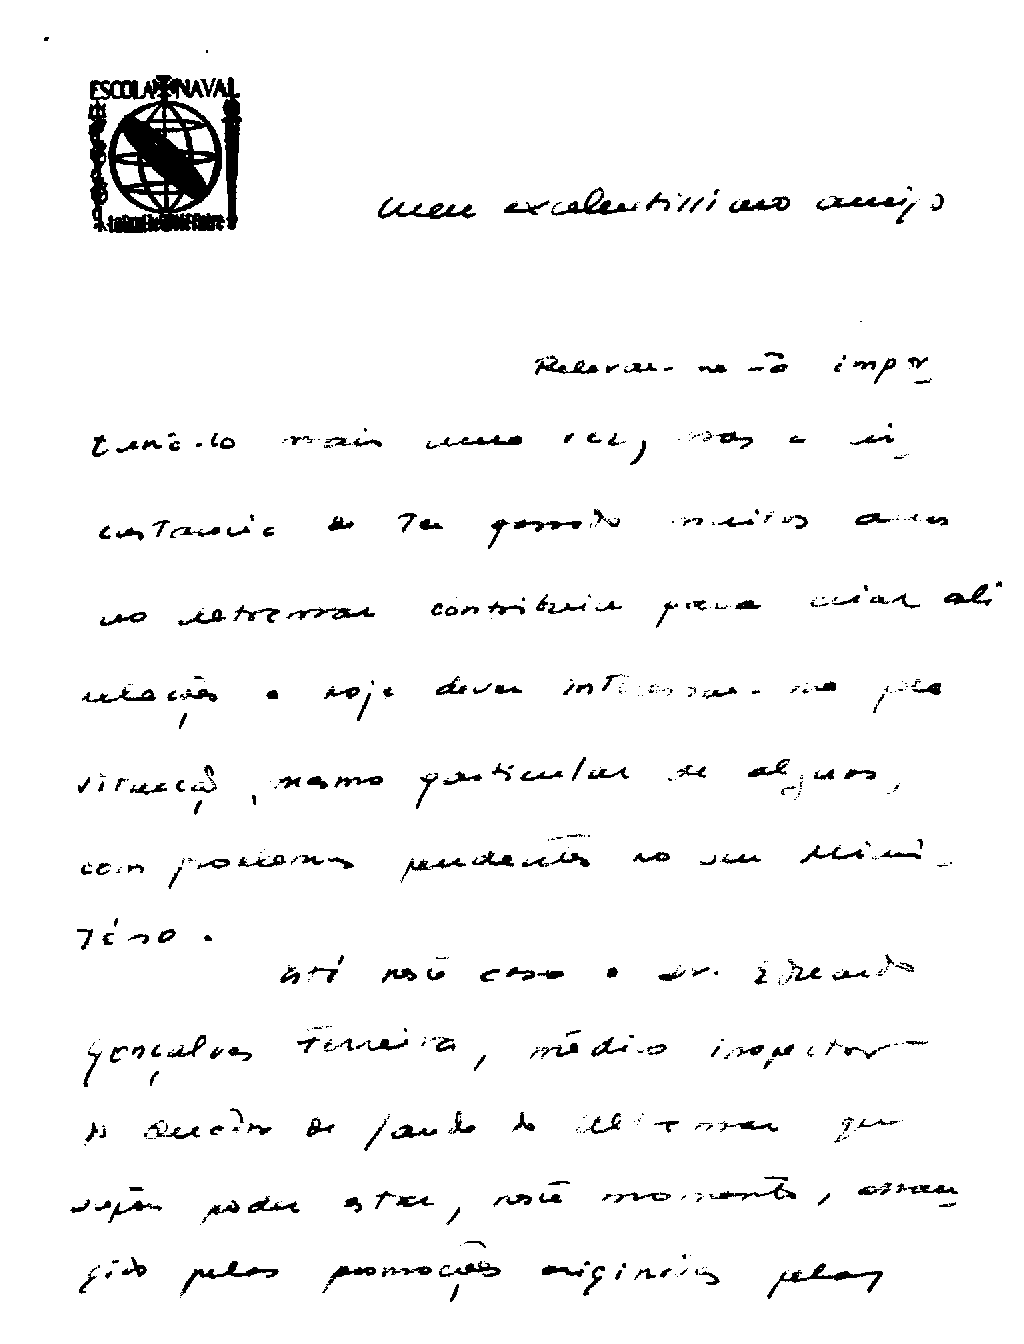 ESCOLA NAVAL
meu excelentissimo amigo
Relevar-me-á impor
tuná-lo mais uma vez, mas a cir
cunstancia de Ter passado muitos anos
no ultramar contribuiu para criar ali
relações e hoje dever interessar-me pela
situação, mesmo particular de alguns,
com problemas pendentes no seu Minis
Tério.
Está neste caso o Dr. Eduardo
Gonçalves Ferreira, médico inspector
do Quadro de saude do Ultramar que
supõe poder estar, neste momento, abran
gido pelas promoções originárias pelas